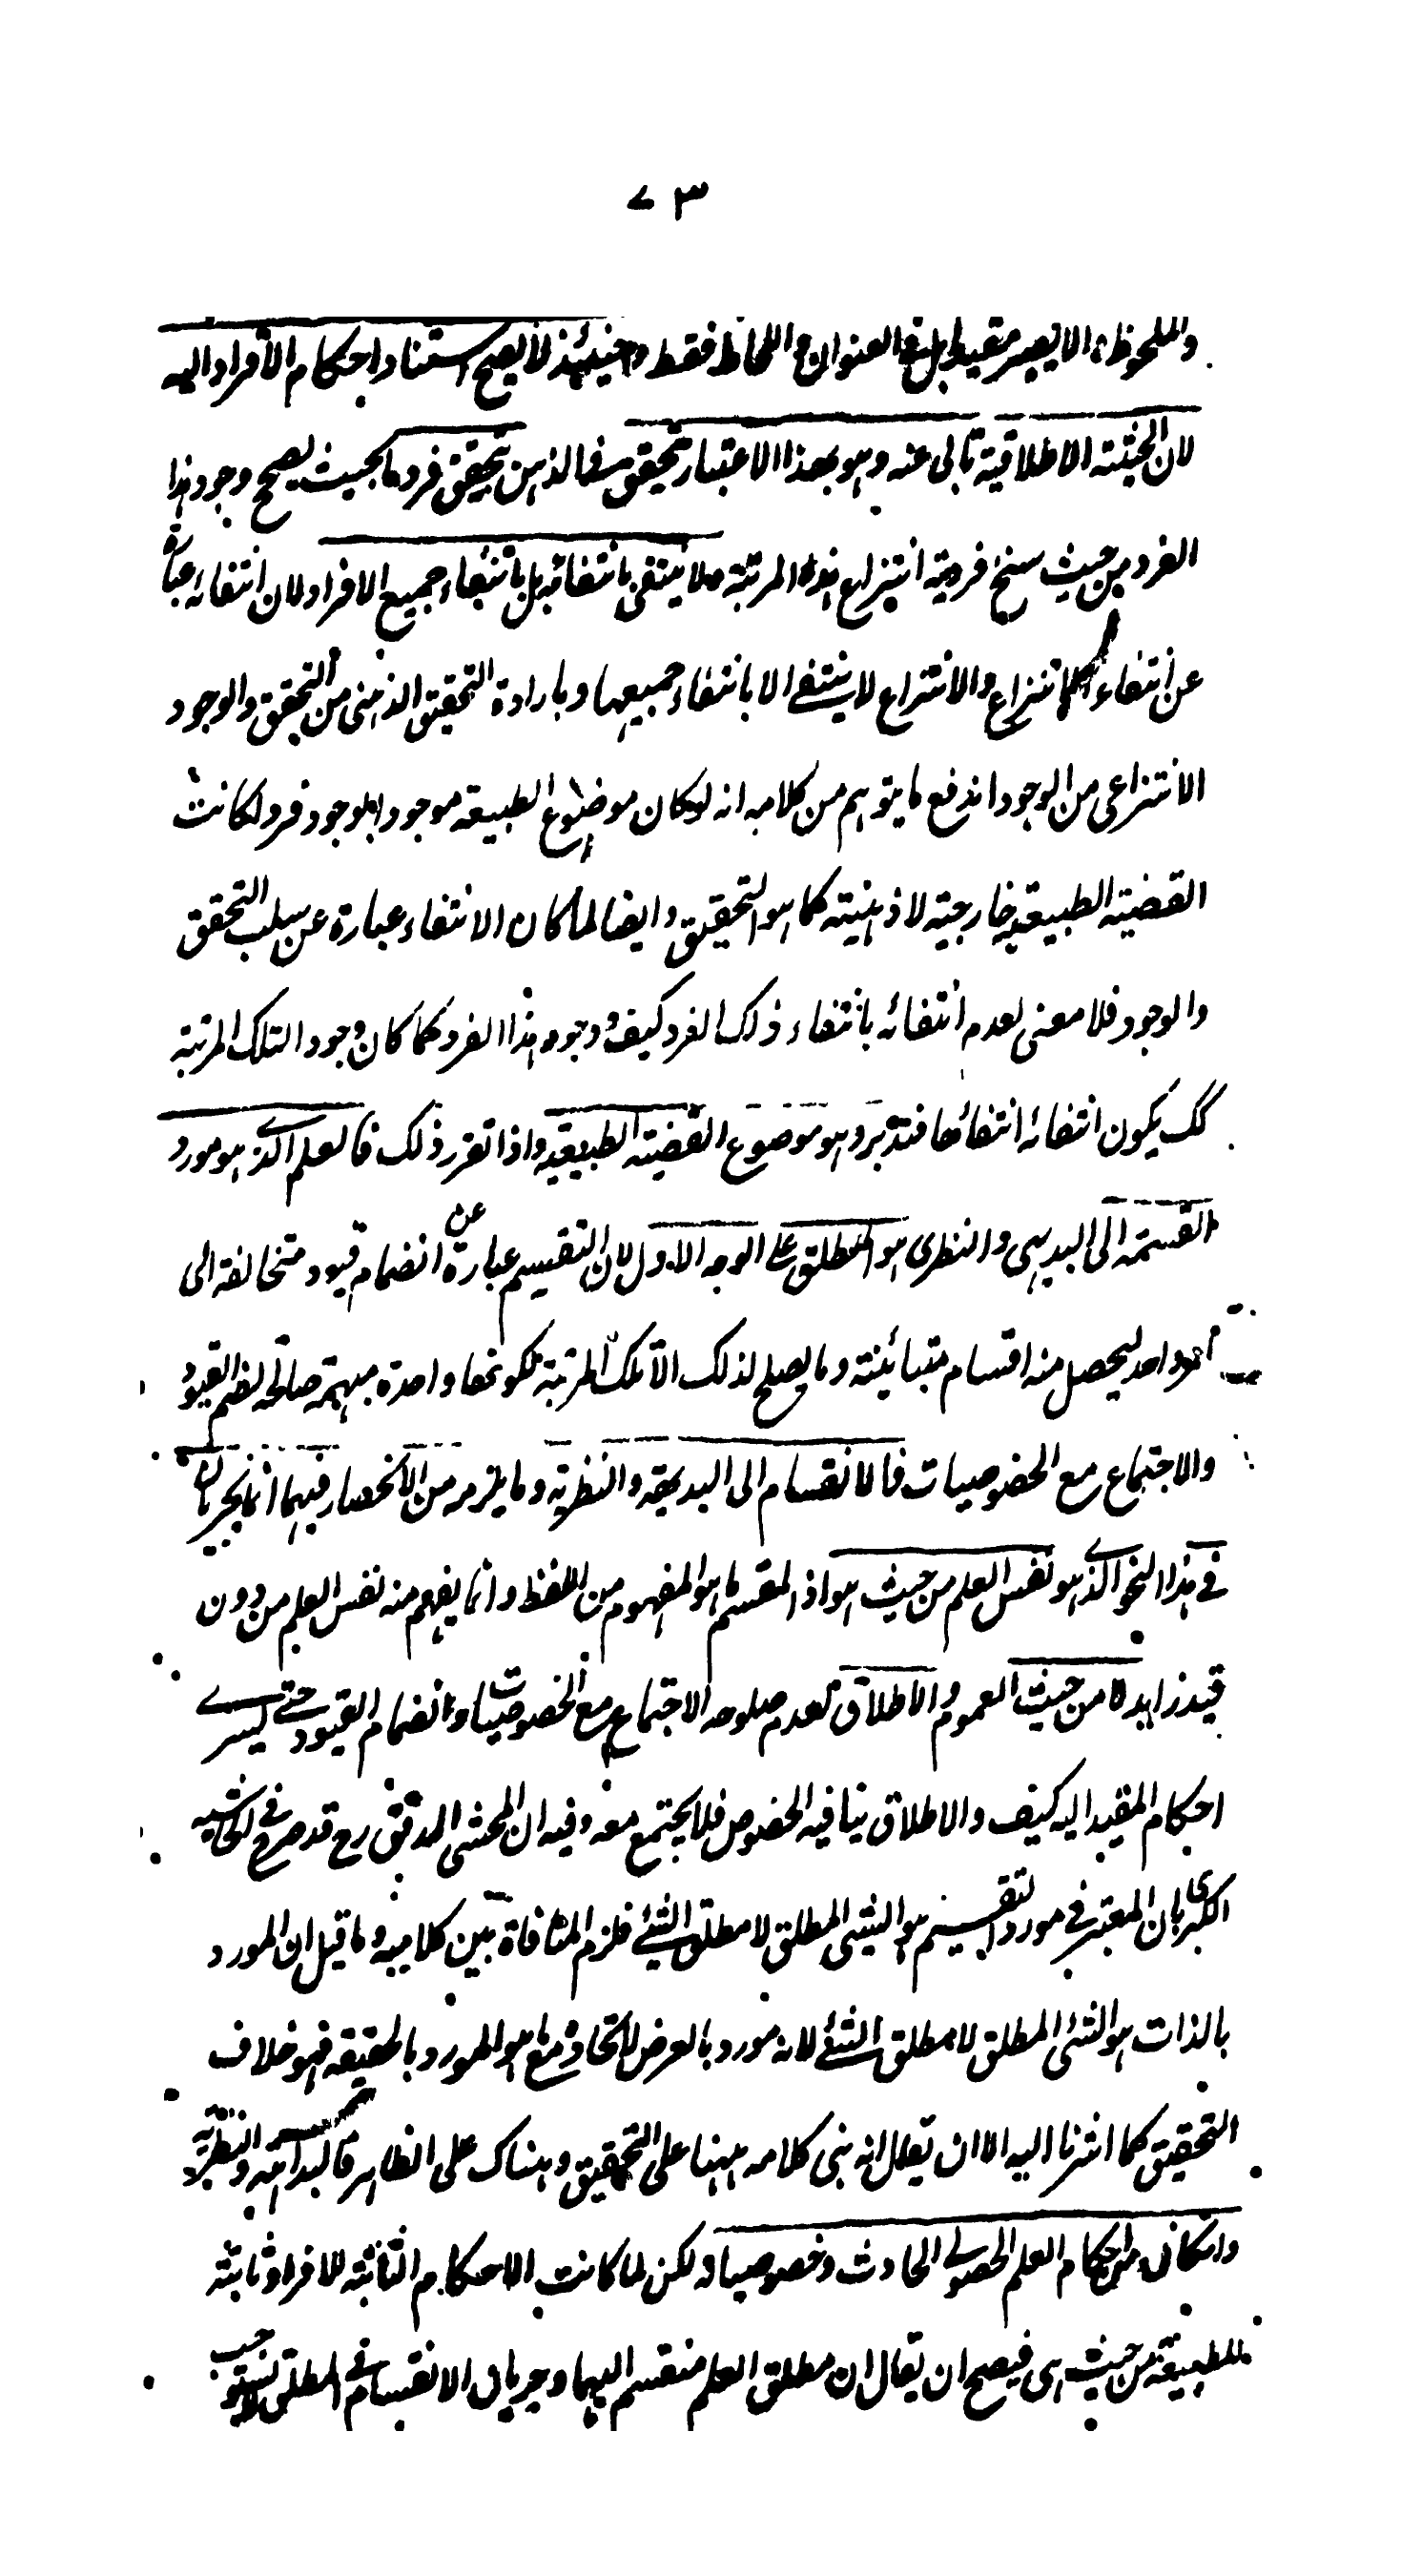 ٧٣
والملحوظ الا يصير مقيدا بل فى العنوان واللحاظ فقط وحينئذ لا يصح استناد احكام الافراد اليه
لان الحيثية الاطلاقية تابى عنه وهو بهذا الاعتبار تحقق فى الذهن بتحقق فرد ما بحيث يصح وجود هذا
الفرد من حيث سنخ فردية انتزاع هذه المرتبة ولا ينتفى بانتفائه بل بانتفاء جميع الافراد لان انتفائه عبارة
عن انتفاء الانتزاع والانتزاع لا ينتفى الا بانتفاء جميعها وبارادة التحقق الذهنى من التحقق والوجود
الانتزاعى من الوجود اندفع ما يتوهم من كلامه انه لو كان موضوع الطبيعة موجودا بوجود فرد لكانت
القضية الطبيعية خارجية لا ذهنية كما هو التحقيق وايضا لما كان الانتفاء عبارة عن سلب التحقق
والوجود فلا معنى لعدم انتفائه بانتفاء ذلك الفرد كيف ووجود هذا الفرد كما كان وجود التلك المرتبة
كك يكون انتفائه انتفائها فتدبر وهو موضوع القضية الطبيعية واذا تقرر ذلك فالعلم الذى هو مورد
القسمة الى البديهى والنظرى هو المطلق على الوجه الاول لان التقسيم عبارة عن انضمام قيود متخالفة الى
امر واحد ليحصل منه اقسام متبائنة وما يصلح لذلك الا تلك المرتبة لكونها واحدة مبهمة صالحة لضم القيود
والاجتماع مع الخصوصيات فالانقسام الى البديهة والنظرية وما يلزمه من الانحصار فيهما انما يجريان
فى هذا النحو الذى هو نفس العلم من حيث هو اذ المقسم ما هو المفهوم من اللفظ وانما يفهم منه نفس العلم من دون
قيد زايد لا من حيث العموم والاطلاق لعدم صلوحه الاجتماع مع الخصوصيات وانضمام القيود حتى يسرى
احكام المقيد اليه كيف والاطلاق ينافيه الخصوص فلا يجتمع معه وفيه ان المحشى المدقق رح قد صرح فى الحاشية
الكبرى بان المعتبر فى مورد التقسيم هو الشئ المطلق لا مطلق الشئ فلزم المنافاة بين كلاميه وما قيل ان المورد
بالذات هو الشئ المطلق لا مطلق الشئ لانه مورد بالعرض لاتحاده مع ما هو المورد بالحقيقة فهو خلاف
التحقيق كما اشرنا اليه الا ان يقال انه بنى كلامه ههنا على التحقيق وهناك على الظاهر فالبداهة والنظرية
وان كانا من احكام العلم الحصولى الحادث وخصوصياته لكن لما كانت الاحكام الثابتة للافراد ثابتة
للطبيعة من حيث هى فيصح ان يقال ان مطلق العلم منقسم اليهما وجريان الانقسام فى المطلق لا يستوجب